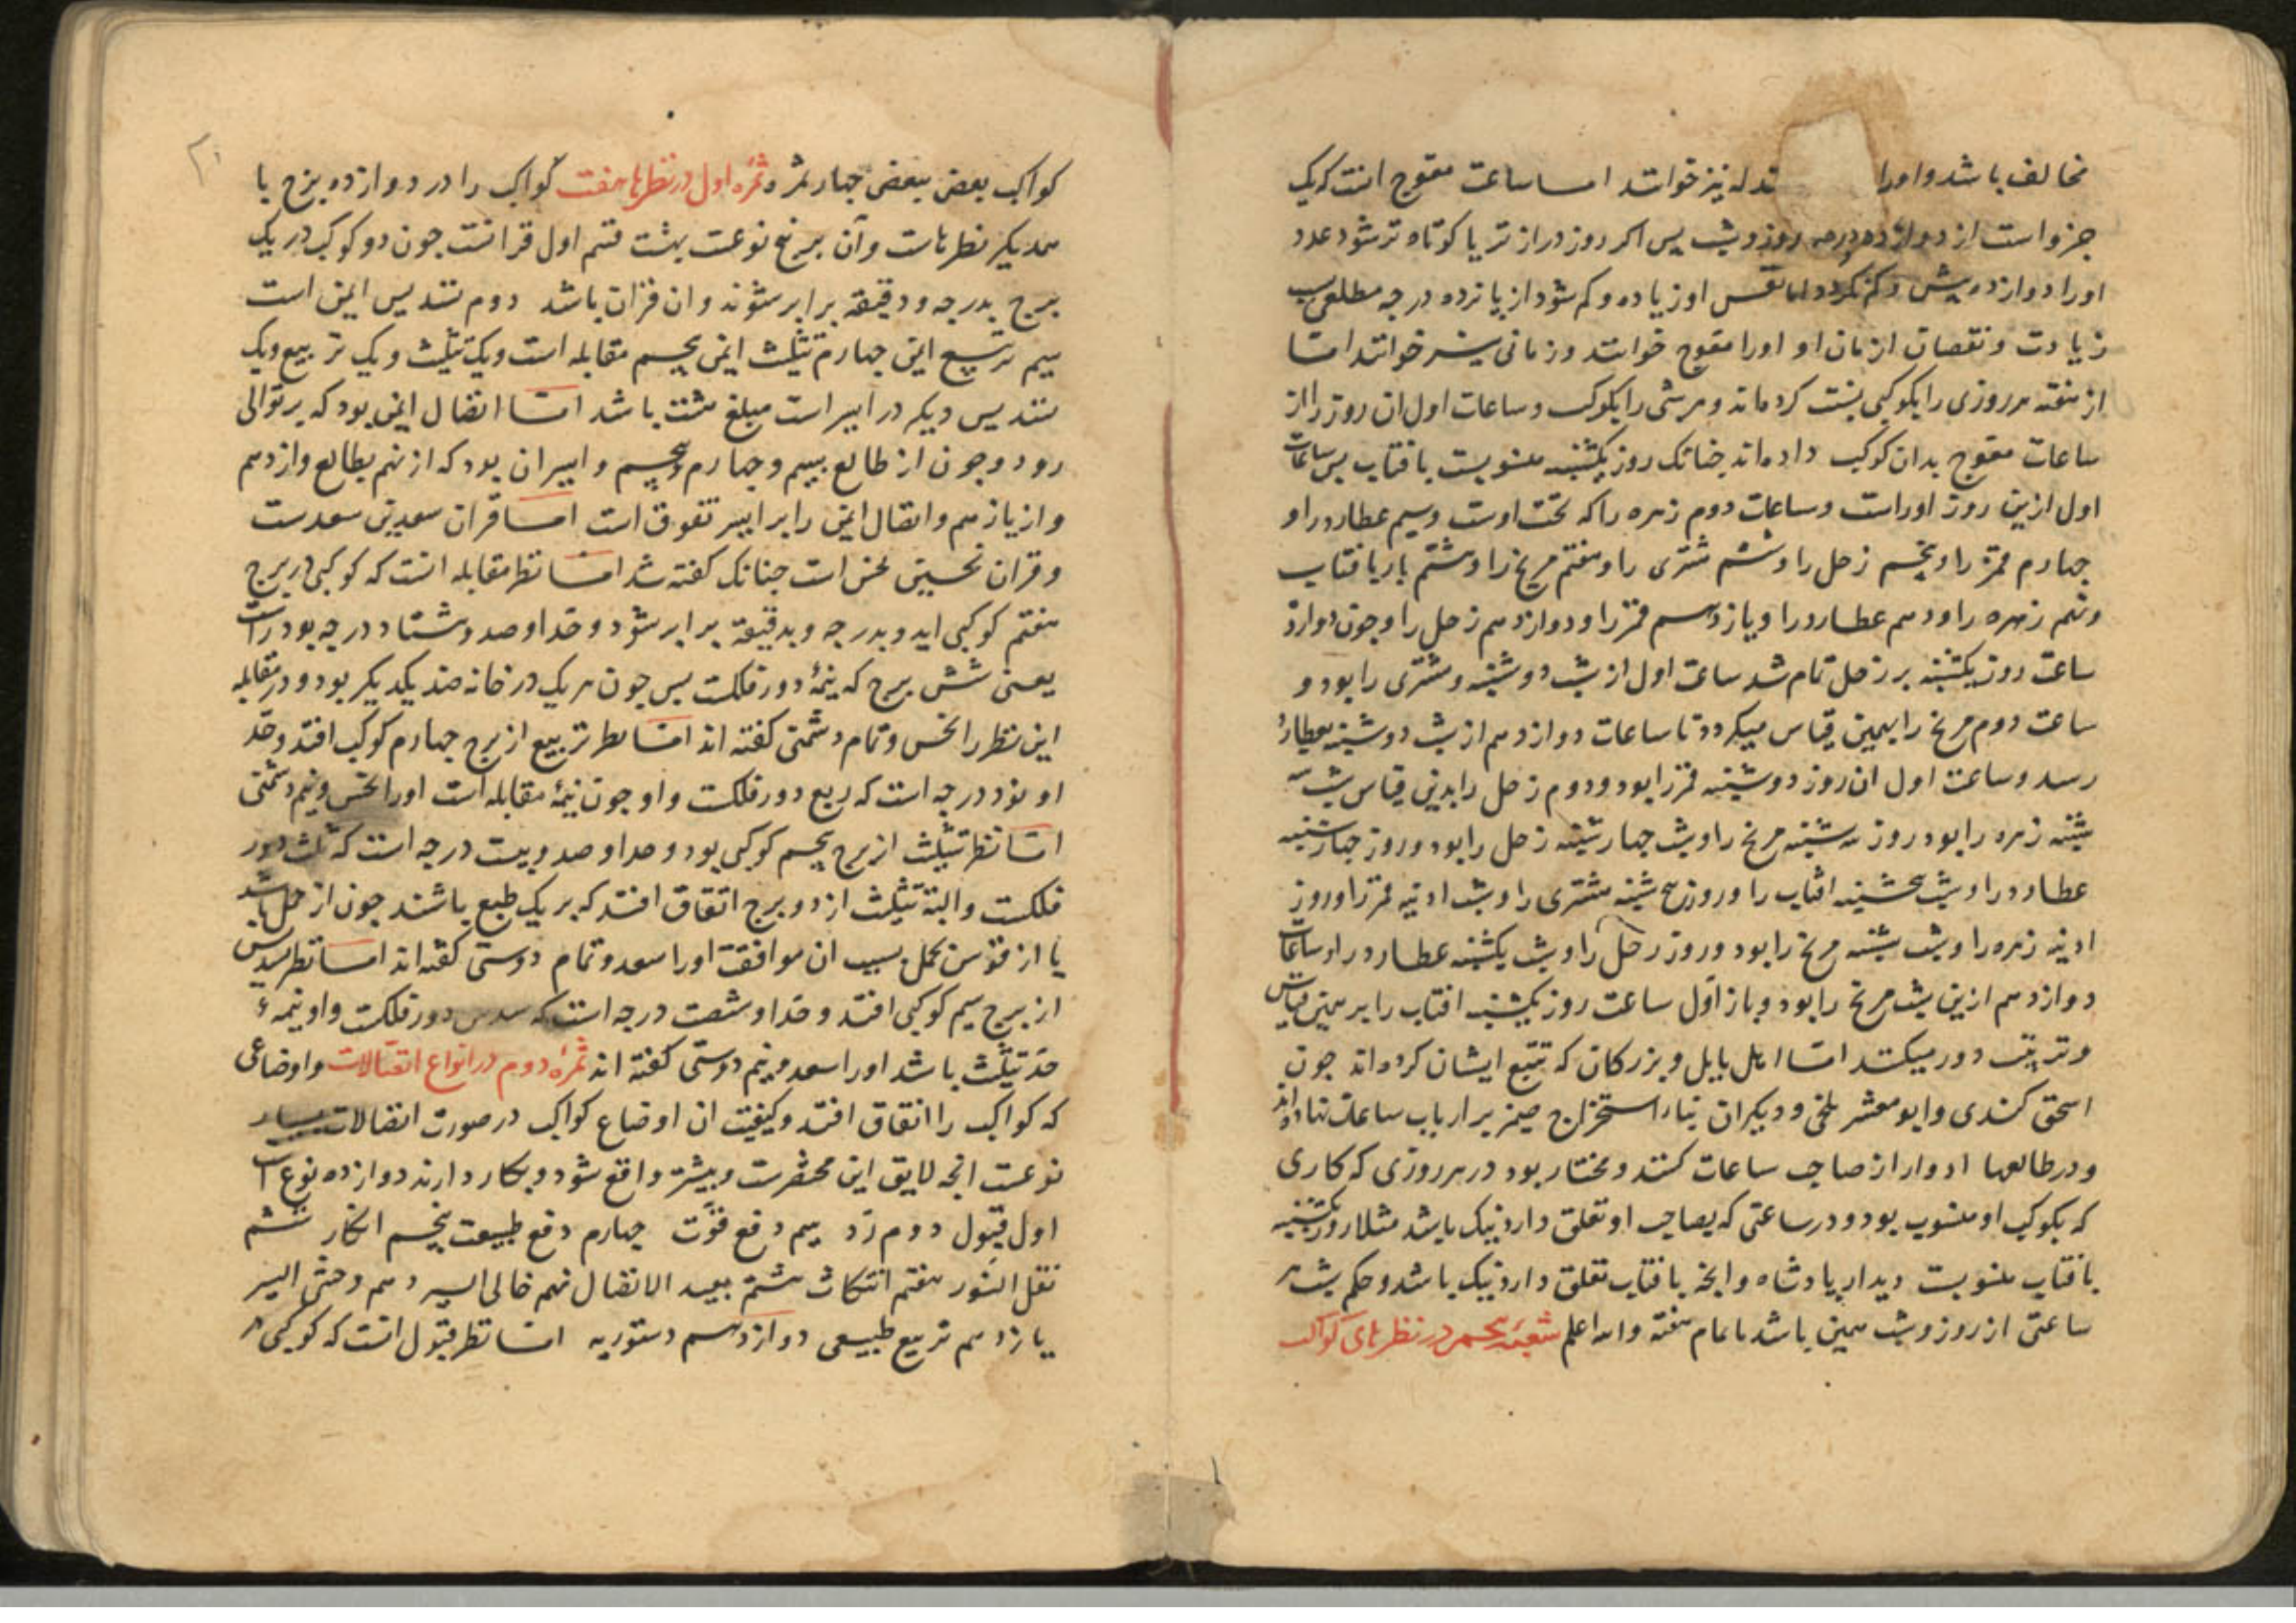 مخالف باشد و اورا تدله نیز خوانند اما ساعت معوج انست که یک
جزواست از دوازده درجه روز و شب پس اکر روز دراز تر یا کوتاه تر شود عدد
اورا دوازده بیش و کم نکردد اما نفس او زیاده و کم شود از پانزده درجه مطلعی بسبب
زیادت و نقصان ازمان او اورا معوج خوانند و زمانی نیز خوانند امّا
از هفته هر روزی را بکوکبی نسبت کرده‌اند و هر شبی را بکوکب و ساعات اول ان روز را از
ساعات معوج بدان کوکب داده‌اند جنانک روز یکشنبه منسوبست بافتاب پس ساعات
اول ازین روز اوراست و ساعات دوم زهره راکه تحت اوست و سیم عطارد را و
جهارم قمر را و پنجم زحل را و ششم مشتری را و هفتم مریخ را و هشتم باز بافتاب
و نهم زهره را و دهم عطارد را و یازدهم قمر را و دوازدهم زحل را و جون دوازده
ساعت روز یکشنبه بر زحل تمام شد ساعت اول از شب دوشنبه مشتری را بود و
ساعت دوم مریخ را بهمین قیاس میکردد تا ساعات دوازدهم از شب دوشنبه بعطارد
رسد و ساعت اول ان روز دوشنبه قمر را بود و دوم زحل را بدین قیاس شب سه
شنبه زهره را بود روز سه شنبه مریخ را و شب جهارشنبه زحل را بود و روز جهارشنبه
عطارد را و شب پنجشنبه افتاب را و روز پنج شنبه مشتری را و شب ادینه قمر را و روز
ادینه زهره را و شب شنبه مریخ را بود و روز زحل را و شب یکشنبه عطارد را و ساعات
دوازدهم ازین شب مریخ را بود و باز اوّل ساعت روز یکشنبه افتاب را بر همین قیاس
و ترتیب دور میکنند امّا اهل بابل و بزرکان که تتبع ایشان کرده‌اند جون
اسحق کندی و ابو معشر بلخی و دیکران بناء استخراج ضمیر بر ارباب ساعات نهاده‌اند
و در طالعها ادوار از صاحب ساعات کنند و مختار بود در هر روزی که کاری
که بکوکب او منسوب بود و در ساعتی که بصاحب او تعلق دارد نیک باشد مثلا روز یکشنبه
بافتاب منسوبست دیدار پادشاه و انجه بافتاب تعلق دارد نیک باشد و حکم شب هر
ساعتی از روز و شب همین باشد تا تمام هفته والله اعلم شعبه پنجم در نظرهای کواکب
کواکب بعض ببعض جهار ثمره ثمرهٔ اول در نظرها هفت کواکب را در دوازده برج با
همدیکر نظرهاست و آن بر پنج نوعست بهشت قسم اول قرانست جون دو کوکب در یک
برج بدرجه و دقیقه برابر شوند و ان قران باشد دوم تسدیس ایمن است
سیم تربیع ایمن جهارم تثلیث ایمن پنجم مقابله است و یک تثلیث و یک تربیع و یک
تسدیس دیکر در ایسر است مبلغ هشت باشد امّا اتصال ایمن بود که بر توالی
رود و جون از طالع بسیم و جهارم و پنجم و ایسر ان بود که از نهم بطالع و از دهم
و از یازدهم و اتصال ایمن را بر ایسر تفوق است امّا قران سعدین سعدست
و قران نحسین نحس است جنانک کفته شد امّا نظر مقابله انست که کوکبی در برج
هفتم کوکبی اید و بدرجه و بدقیقه برابر شود و حدّ او صد و هشتاد درجه بود راست
یعنی شش برج که نیمهٔ دور فلکست پس جون هر یک در خانه ضد یکدیکر بود و در مقابله
این نظر را نحس و تمام دشمنی کفته اند امّا نظر تربیع از برج جهارم کوکب افتد و حدّ
او نود درجه است که ربع دور فلکست و او جون نیمهٔ مقابله است اورا نحس و نیم دشمنی
امّا نظر تثلیث از برج پنجم کوکبی بود و حد او صد و بیست درجه است که ثلث دور
فلکست و البته تثلیث از دو برج اتفاق افتد که بر یک طبع باشند جون از حمل باسد
یا از قوس بحمل بسبب ان موافقت اورا سعد و تمام دوستی کفته اند امّا نظر تسدیس
از برج سیم کوکبی افتد و حدّ او شصت درجه است که سدس دور فلکست و او نیمهٔ
حدّ تثلیث باشد اورا سعد و نیم دوستی کفته اند ثمرهٔ دوم در انواع اتصالات و اوضاعی
که کواکب را اتفاق افتد و کیفیت ان اوضاع کواکب در صورت اتصالات بسیار
نوعست انجه لایق این مختصرست و بیشتر واقع شود و بکار دارند دوازده نوع است
اول قبول دوم ردّ سیم دفع قوّت جهارم دفع طبیعت پنجم انکار ششم
نقل النور هفتم انتکاث هشتم بعید الاتصال نهم خالی السیر دهم وحشی السیر
یازدهم تربیع طبیعی دوازدهم دستوریه امّا نظر قبول انست که کوکبی